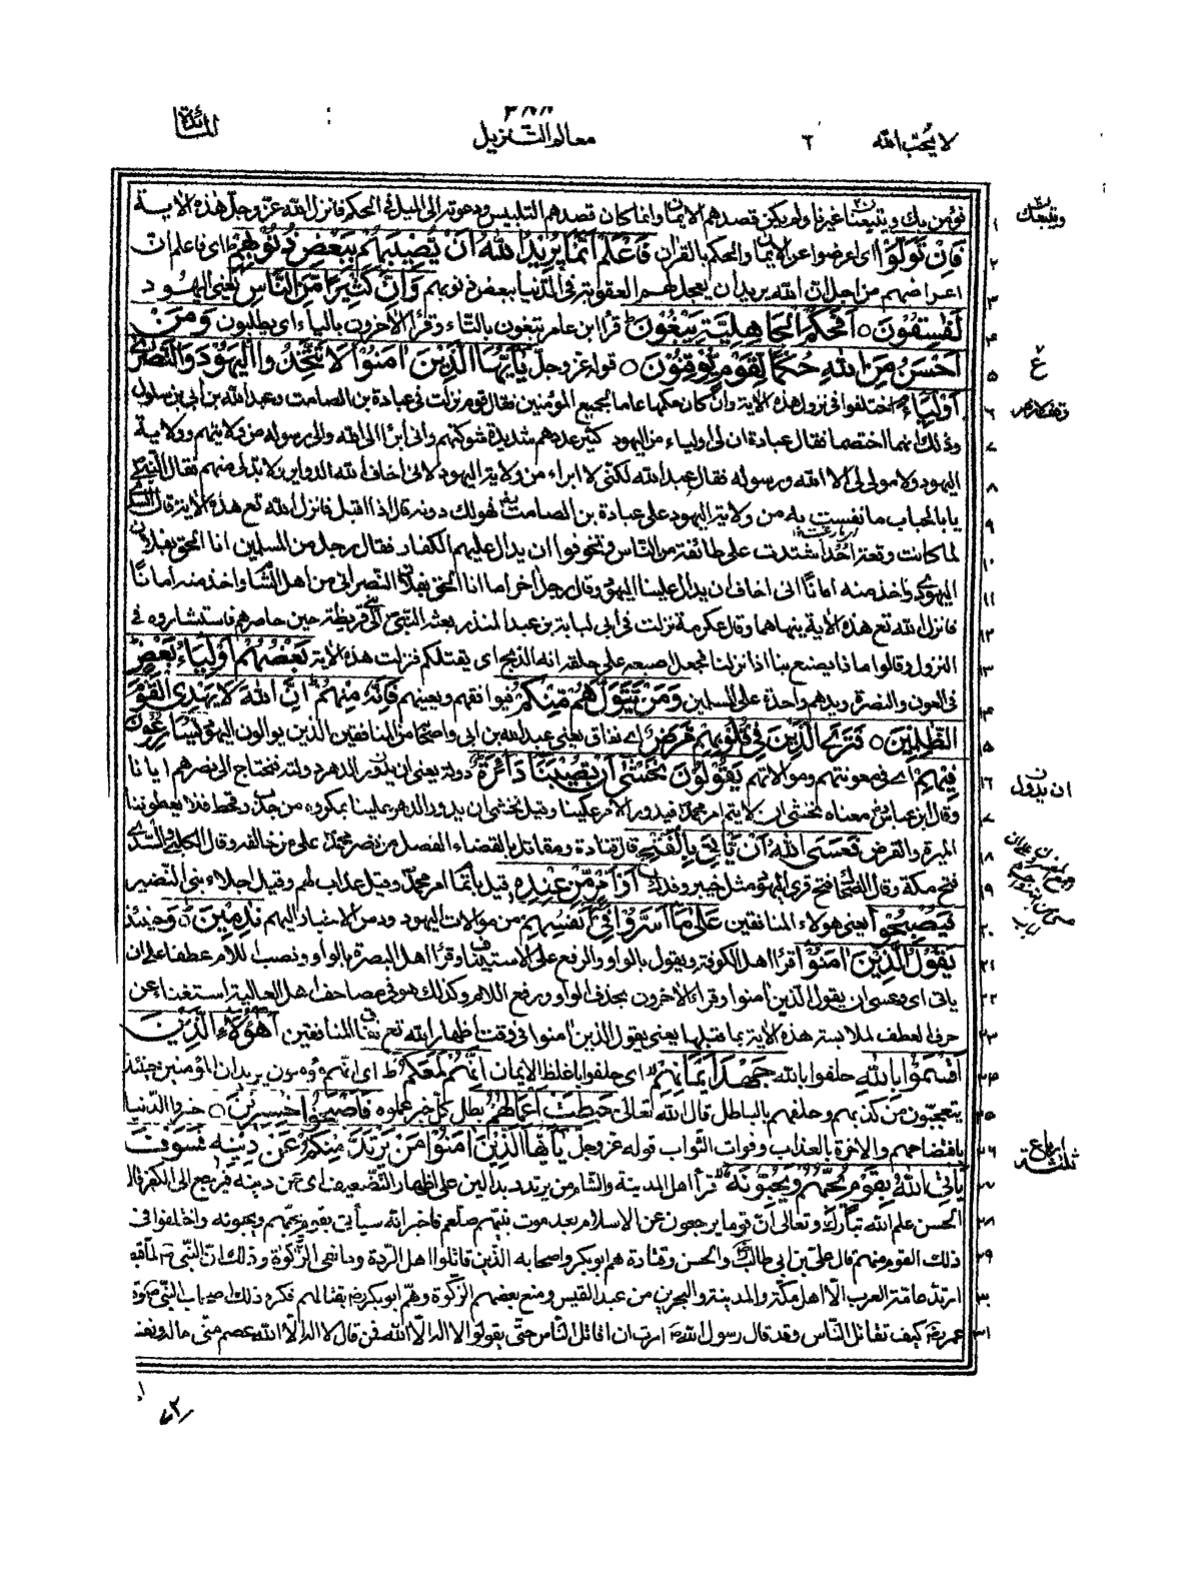 لا يحب الله ٦
معالم التنزيل
المائدة
نؤمن بك ويتبعنا غيرنا ولم يكن قصدهم الايمان وانما كان قصدهم التلبيس ودعوته الى الميل في الحكم فانزل الله عز وجل هذه الاية
فَاِنْ تَوَلَّوْا اى اعرضوا عن الايمان والحكم بالقران فَاعْلَمْ اَنَّمَا يُرِيْدُ اللّٰهُ اَنْ يُّصِيْبَهُمْ بِبَعْضِ ذُنُوْبِهِمْ ط اى فاعلم ان
اعراضهم من اجل ان الله يريد ان يعجل لهم العقوبة فى الدنيا ببعض ذنوبهم وَاِنَّ كَثِيْرًا مِّنَ النَّاسِ يعنى اليهود
لَفٰسِقُوْنَ ○ اَفَحُكْمَ الْجَاهِلِيَّةِ يَبْغُوْنَ ط قرأ ابن عامر تبغون بالتاء وقرأ الاخرون بالياء اى يطلبون وَمَنْ
اَحْسَنُ مِنَ اللّٰهِ حُكْمًا لِّقَوْمٍ يُّوْقِنُوْنَ ○ قوله عز وجل يٰۤاَيُّهَا الَّذِيْنَ اٰمَنُوْا لَا تَتَّخِذُوا الْيَهُوْدَ وَالنَّصٰرٰى
اَوْلِيَآءَ اختلفوا فى نزول هذه الاية وان كان حكمها عاما لجميع المؤمنين فقال قوم نزلت فى عبادة بن الصامت وعبد الله بن ابى بن سلول
وذلك انهما اختصما فقال عبادة ان لى اولياء من اليهود كثير عددهم شديدة شوكتهم وانى ابرأ الى الله والى رسوله من ولايتهم وولاية
اليهود ولا مولى لى الا الله ورسوله فقال عبد الله لكنى لا ابراء من ولاية اليهود لانى اخاف الله الدوابر ولا بد لى منهم فقال النبى
يا ابا الحباب ما نفست به من ولاية اليهود على عبادة بن الصامت فهو لك دونه قال اذا اقبل فانزل الله تع هذه الاية قال السدى
لما كانت وقعة احد اشتدت على طائفة من الناس وتخوفوا ان يدال عليهم الكفار فقال رجل من المسلمين انا الحق بفلان
اليهودى واخذ منه امانًا انى اخاف ان يدال علينا اليهود وقال رجل اخر اما انا الحق بفلان النصرانى من اهل الشام واخذ منه امانا
فانزل الله تع هذه الاية ينهاهما وقال عكرمة نزلت فى ابى لبابة بن عبد المنذر بعثه النبى الى بنى قريظة حين حاصرهم فاستشاروه فى
النزول وقالوا ماذا يصنع بنا اذا نزلنا فجعل اصبعه على حلقه انه الذبح اى يقتلكم فنزلت هذه الاية بَعْضُهُمْ اَوْلِيَآءُ بَعْضٍ
فى العون والنصرة ويدهم واحدة على المسلمين وَمَنْ يَّتَوَلَّهُمْ مِّنْكُمْ فيوافقهم ويعينهم فَاِنَّهٗ مِنْهُمْ اِنَّ اللّٰهَ لَا يَهْدِى الْقَوْمَ
الظّٰلِمِيْنَ ○ فَتَرَى الَّذِيْنَ فِىْ قُلُوْبِهِمْ مَّرَضٌ اى نفاق يعنى عبد الله بن ابى واصحابه من المنافقين الذين يوالون اليهود يُّسَارِعُوْنَ
فِيْهِمْ اى فى معونتهم وموالاتهم يَقُوْلُوْنَ نَخْشٰۤى اَنْ تُصِيْبَنَا دَآئِرَةٌ دولة يعنى ان يدور الدهر دولته فنحتاج الى نصرهم ايانا
وقال ابن عباس معناه نخشى ان لا يتم امر محمد فيدور الامر علينا وقيل نخشى ان يدور الدهر علينا بمكروه من جدب وقحط فلا يعطوننا
الميرة والقرض فَعَسَى اللّٰهُ اَنْ يَّاْتِىَ بِالْفَتْحِ قال قتادة ومقاتل بالقضاء الفصل من نصر محمد على من خالفه وقال الكلبى والسدى
فتح مكة وقال الضحاك فتح قرى اليهود مثل خيبر وفدك اَوْ اَمْرٍ مِّنْ عِنْدِهٖ قيل باتمام امر محمد وقيل عذاب لهم وقيل اجلاء بنى النضير
فَيُصْبِحُوْا يعنى هولاء المنافقين عَلٰى مَاۤ اَسَرُّوْا فِىْۤ اَنْفُسِهِمْ من موالات اليهود ودس الاخبار اليهم نٰدِمِيْنَ ○ وحينئذ
يَقُوْلُ الَّذِيْنَ اٰمَنُوْا قرأ اهل الكوفة ويقول بالواو والرفع على الاستيناف وقرأ اهل البصرة بالواو ونصب للام عطفا على ان
ياتى اى وعسى ان يقول الذين امنوا وقراء الاخرون بحذف الواو ورفع اللام وكذلك هو فى مصاحف اهل العالية استغناء عن
حرف العطف لملابسة هذه الاية بما قبلها يعنى يقول الذين امنوا فى وقت اظهار الله تع نفاق المنافقين اَهٰۤؤُلَآءِ الَّذِيْنَ
اَقْسَمُوْا بِاللّٰهِ حلفوا بالله جَهْدَ اَيْمَانِهِمْ اى حلفوا باغلظ الايمان اِنَّهُمْ لَمَعَكُمْ ط اى انهم مؤمنون يريد ان المؤمنين حينئذ
يتعجبون من كذبهم وحلفهم بالباطل قال الله تعالى حَبِطَتْ اَعْمَالُهُمْ بطل كل خير عملوه فَاَصْبَحُوْا خٰسِرِيْنَ ○ خسروا الدنيا
بافتضاحهم والاخرة بالعذاب وفوات الثواب قوله عز وجل يٰۤاَيُّهَا الَّذِيْنَ اٰمَنُوْا مَنْ يَّرْتَدَّ مِنْكُمْ عَنْ دِيْنِهٖ فَسَوْفَ
يَاْتِى اللّٰهُ بِقَوْمٍ يُّحِبُّهُمْ وَيُحِبُّوْنَهٗ قرأ اهل المدينة والشام من يرتدد بدالين على اظهار التضعيف اى عن دينه فيرجع الى الكفر قال
الحسن علم الله تبارك وتعالى ان قوما يرجعون عن الاسلام بعد موت نبيهم صلعم فاخبر انه سيأتى بقوم يحبهم ويحبونه واختلفوا فى
ذلك القوم منهم قال على بن ابى طالب والحسن وقتادة هم ابو بكر واصحابه الذين قاتلوا اهل الردة ومانعى الزكوة وذلك ان النبى لما قبض
ارتد عامة العرب الا اهل مكة والمدينة والبحرين من عبد القيس ومنع بعضهم الزكوة وهم ابو بكر بقتالهم فكره ذلك اصحاب النبى وقال
عمر كيف تقاتل الناس وقد قال رسول الله امرت ان اقاتل الناس حتى يقولوا لا اله الا الله فمن قال لا اله الا الله عصم منى ماله ونفسه
ويتبعك
ع
ان يدول